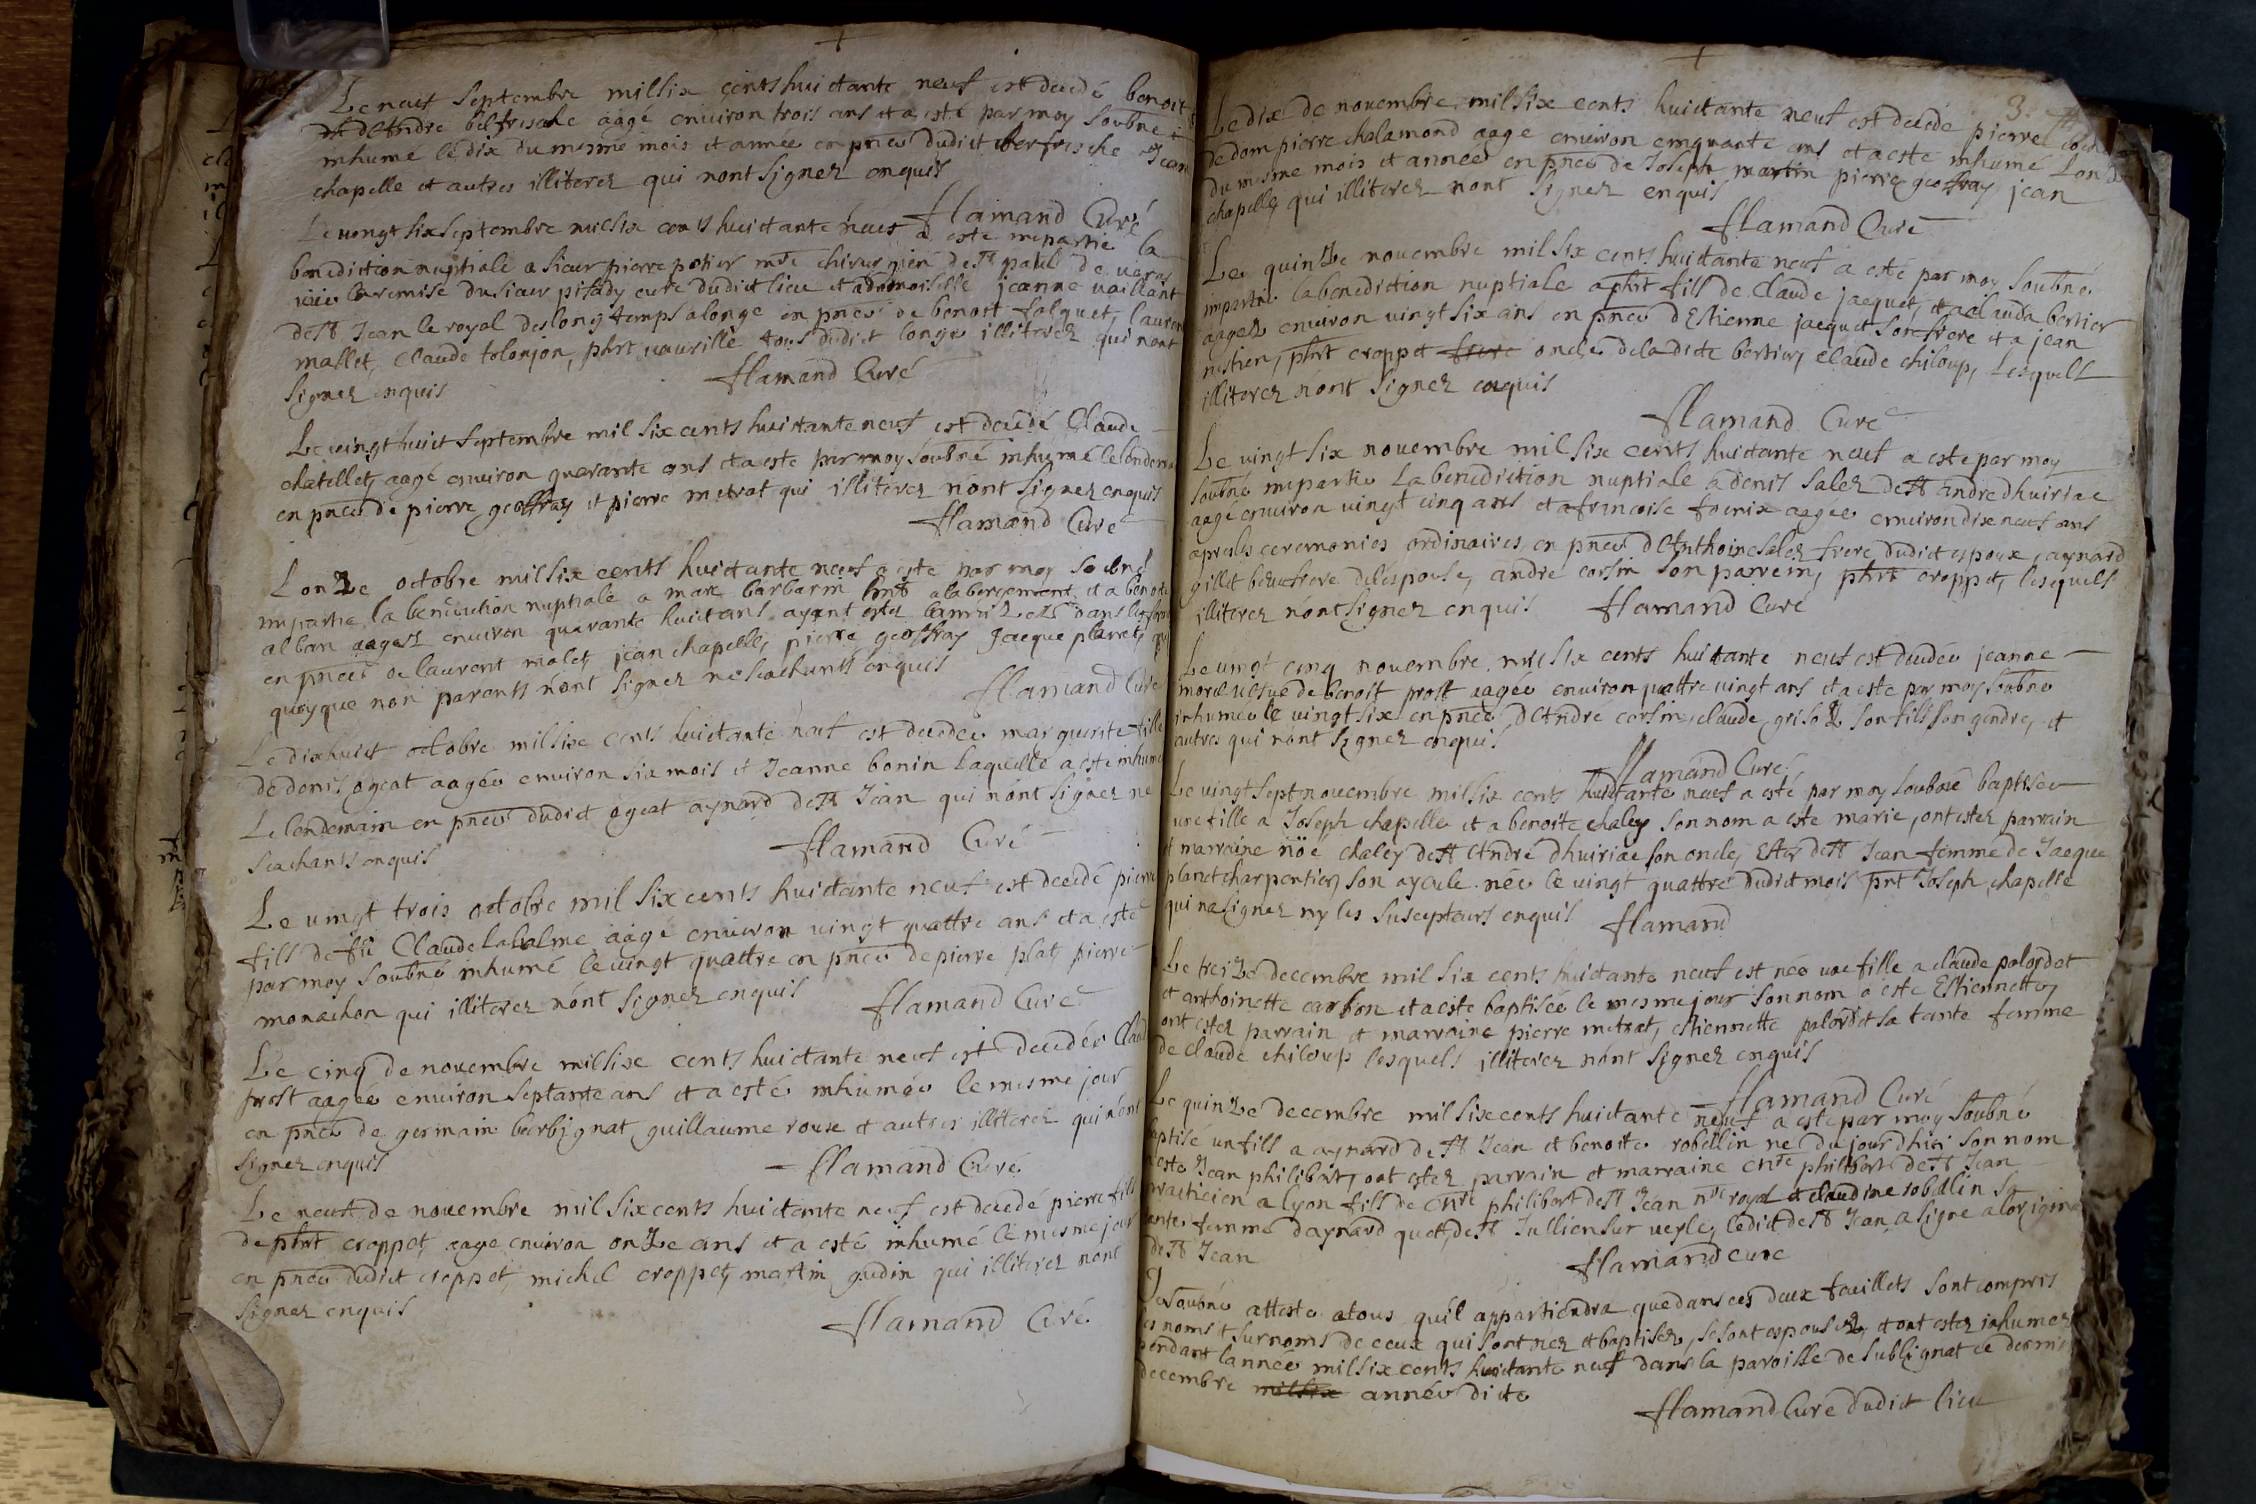 Le neuf Septembre mil six cents huictante neuf est decedé benoit
d'Andre belfrische aagé environ trois ans et a esté par moy soubné
inhumé le dix du mesme mois et année en pnce dudict berfrische Jean
chapelle et autres illiterez qui nont signez enquis
flamand Curé
Le vingt six septembre mil six cents huictante neuf a este impartie la
benediction nuptiale a sieur pierre potier mre chirurgien de St paul de varas
veue la remise du sieur pitady cure dudict lieu et a damoiselle jeanne vaillant
de St Jean le royal deslong temps a longe en pnce de benoit falquet, laurent
mallet, Claude tolonjon, phrt vaurille tous dudict longe illiterez qui nont
signez enquis flamand Curé
Le vingt huict septembre mil six cents huictante neuf est decedé Claude
chatellet, aagé environ quarante ans et a este par moy soubné inhumé le lendemain
en pnce de pierre geoffray et pierre metrat qui illiterez n'ont signez enquis
flamand Curé
L'onze octobre mil six cents huictante neuf a este par moy soubné
impartie la benediction nuptiale a marc barbarin a labergement, et a benoite
alban aagez environ quarante huict ans ayant estez dans les formes
en pnce de laurent malet, jean chapelle, pierre geoffray Jacque planet,
quoy que non parents n'ont signez ne scachants enquis
flamand Curé
Le dixhuict octobre mil six cents huictante neuf est decedee marguerite fille
de denis ogeat aagée environ six mois et Jeanne bonin laquelle a este inhumée
Le lendemain en pnce dudict ogeat aynard de St Jean qui n'ont signez ne
scachants enquis flamand Curé
Le vingt trois octobre mil six cents huictante neuf est decedé pierre
fils de fû Claude labalme aagé environ vingt quattre ans et a esté
par moy soubné inhumé le vingt quattre en pnce de pierre plat, pierre
monachon qui illiterez n'ont signez enquis flamand Curé
Le cinq de novembre mil six cents huictante neuf est decedée Claud
prost aagée environ septante ans et a esté inhumée le mesme jour
en pnce de germain berbignat guillaume roux et autres illiterez qui n'ont
signez enquis flamand Curé
Le neuf de novembre mil six cents huictante neuf est decedé pierre fils
de phrt croppet, aage environ onze ans et a esté inhumé le mesme jour
en pnce dudict croppet, michel croppet, martin gudin qui illiterez nont
signez enquis
flamand Curé
3
Le dix de novembre mil six cents huictante neuf est decedé pierre
de dom pierre chalamond aage environ cinquante ans et a este inhumé L'onze
du mesme mois et année en pnce de Joseph martin pierre geoffray, jean
chapelle qui illiterez nont signez enquis
flamand Curé
Le quinze novembre mil six cents huictante neuf a esté par moy soubné
impartie la benediction nuptiale a phrt fils de Claude jacquet, et a clauda bertier
aagez environ vingt six ans en pnce d'Estienne jacquet son frere et a jean
nestien, phrt croppet frere oncle de la dicte bertier, Claude chiloup, Lesquels
illiterez n'ont signez enquis
flamand Curé
Le vingt six novembre mil six cents huictante neuf a este par moy
soubné impartie La benediction nuptiale a denis salez de St andre d'huiriac
aagé environ vingt cinq ans et a francoise fornix aagée environ dixneuf ans
apres les ceremonies ordinaires, en pnce d'Anthoine salez frere dudict espoux, aynard
gillet beaufrere de l'espouse, andre corsin son parrein, phrt croppet, lesquels
illiterez n'ont signez enquis flamand Curé
Le vingt cinq novembre mil six cents huictante neuf est decedée jeanne
morel vefve de benoist prost aagée environ quattre vingt ans et a este par moy soubné
inhumée le vingt six en pnce d'André corsin, claude grisoz son fils son gendre, et
autres qui n'ont signez enquis
flamand Curé
Le vingt sept novembre mil six cents huictante neuf a esté par moy soubné baptisée
une fille a Joseph chapelle et a benoite chaley son nom a este marie, ont estez parrain
et marraine noë chaley de St André d'huiriac son oncle, Ester de St Jean femme de Jacque
planet charpentier, son ayeule née le vingt quattre dudict mois pnt Joseph chapelle
qui na signez ny les suscepteurs enquis flamand
Le treize decembre mil six cents huictante neuf est née une fille a claude palordet
et anthoinette carbon et a este baptisée le mesme jour son nom a este Estiennette,
ont estez parrain et marraine pierre metrat, estiennette palordet sa tante femme
de claude chiloup lesquels illiterez n'ont signez enquis
flamand Curé
Le quinze decembre mil six cents huictante neuf a este par moy soubné
baptisé un fils a aynard de St Jean et benoite robellin né du jourdhui son nom
a este Jean philibert, ont estez parrain et marraine philibert de St Jean
praticien a lyon fils de philibert de St Jean nre royal et claudine robellin sa
tante femme d'aynard quet, de St Jullien sur veyle, ledict de St Jean a signé a l'origine
de St Jean flamand Cure
Je soubné atteste a tous qu'il appartiendra que dans ces deux feuillets sont compris
les noms et surnoms de ceux qui sont nez et baptisez, se sont espousez, et ont estez inhumez
pendant l'année mil six cents huictante neuf dans la paroisse de sulignat ce dernier
decembre mil six année dicte
flamand Curé dudict lieu